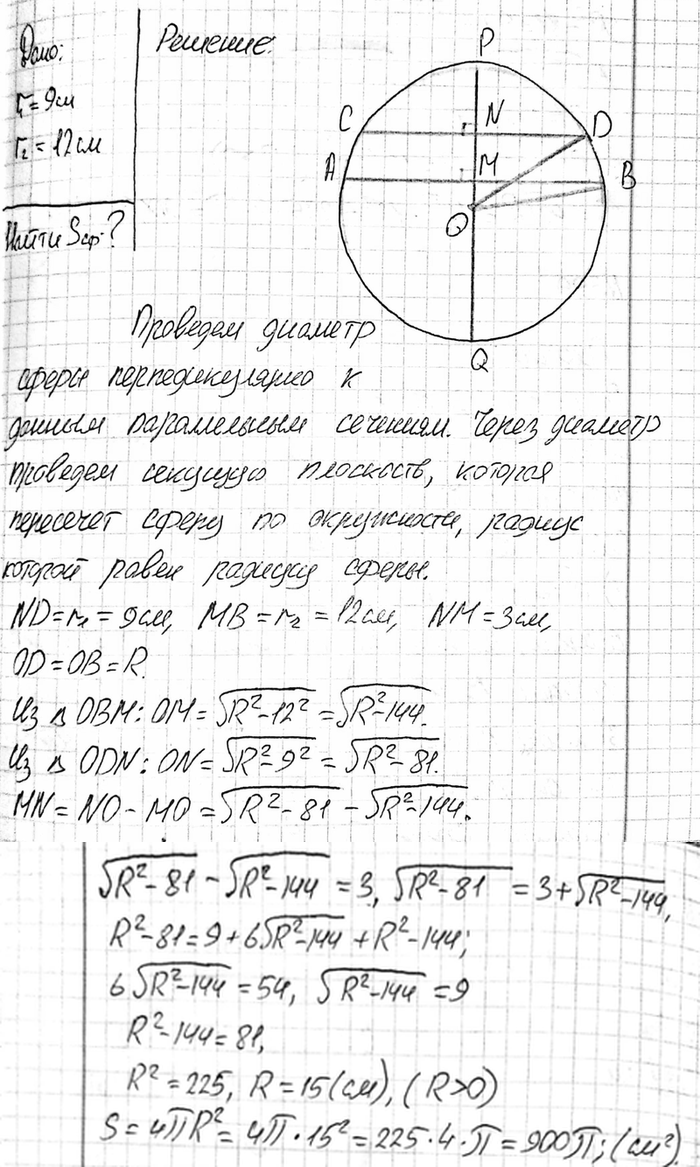 Дано:
Решение.
r₁ = 9см
r₂ = 12см
Найти Sсф.?
P
C
N
D
A
M
B
O
Q
Проведем диаметр
сферы перпедикулярно к
данным параллельным сечениям. Через диаметр
проведем секущую плоскость, которая
пересечет сферу по окружности, радиус
которой равен радиусу сферы.
ND = r₁ = 9см, MB = r₂ = 12см, NM = 3см,
OD = OB = R.
Из △ OBM: OM = √(R²-12²) = √(R²-144).
Из △ ODN: ON = √(R²-9²) = √(R²-81).
MN = NO - MO = √(R²-81) - √(R²-144).
√(R²-81) - √(R²-144) = 3, √(R²-81) = 3 + √(R²-144),
R²-81 = 9 + 6√(R²-144) + R²-144;
6√(R²-144) = 54, √(R²-144) = 9
R²-144 = 81,
R² = 225, R = 15 (см), (R>0)
S = 4πR² = 4π · 15² = 225 · 4 · π = 900π; (см²).